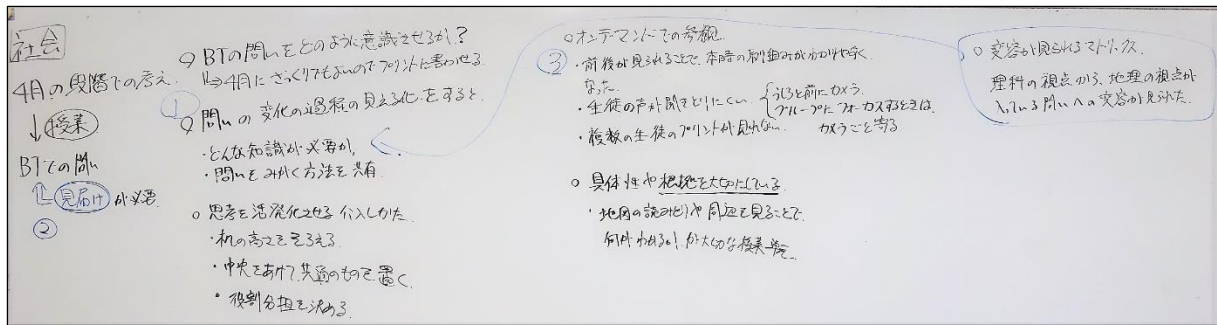 社会
4月の段階での考え
↓ 授業
BTでの問い
見届けが必要
②
○ BTの問いをどのように意識させるか?
↳4月にざっくりでもよいのでプリントに書かせる
①
○ 問いの変化の過程の見える化をすると
・どんな知識が必要か,
・問いをみがく方法を共有
○ 思考を活発化させる介入しかた
・机の高さをそろえる
・中央をあけて共通のものを置く
・役割分担を決める
○オンデマンドでの参観
③
・前後が見られることで、本時の取り組みが分かりやすく
なった。
・生徒の声が聞きとりにくい
うしろと前にカメラ
グループにフォーカスするときは
カメラごと寄る
・複数の生徒のプリントが見れない
○ 具体性や根拠を大切にしている
・地図の読みとりや周辺を見ることで
何がわかるか!が大切な授業
○ 変容が見られるマトリックス
理科の視点から、地理の視点が
入っている問いへの変容が見られた